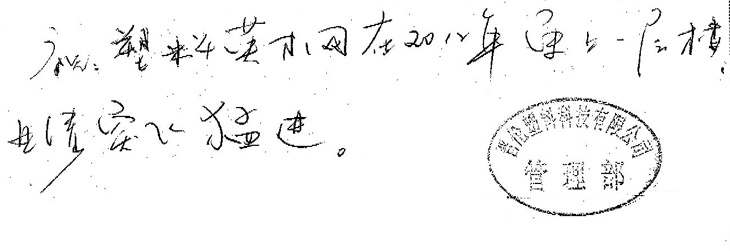 祝:塑料英才网在2012年更上一层楼,
业绩突飞猛进。
普伦塑料科技有限公司
管理部